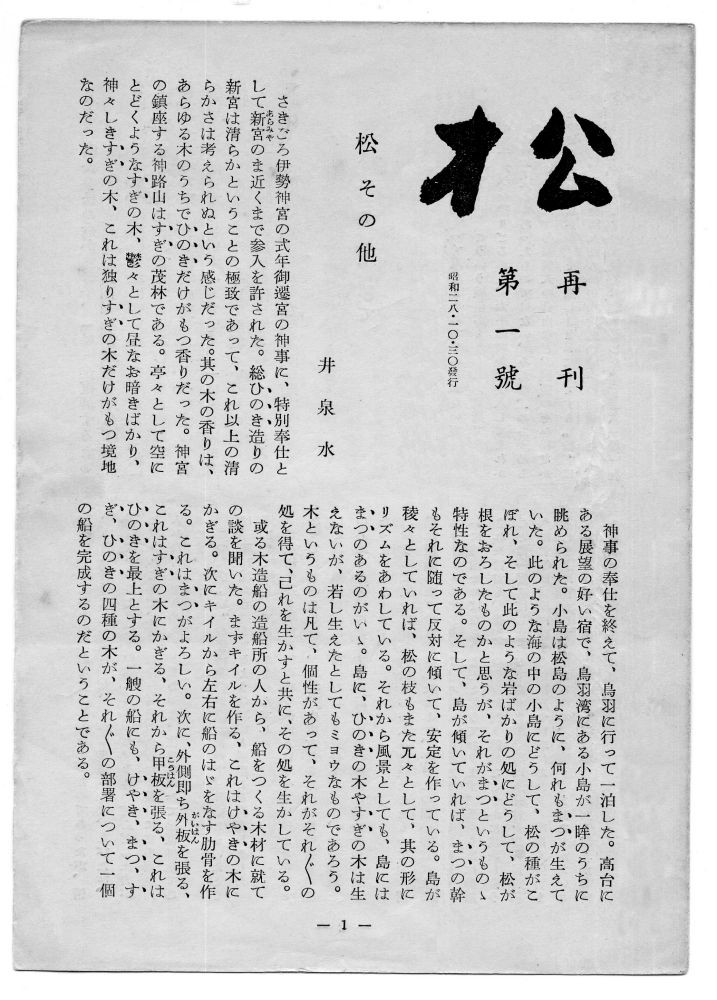 松
再刊
第一號
昭和二八・一〇・三〇發行
松その他
井泉水
さきごろ伊勢神宮の式年御遷宮の神事に、特別奉仕と
して新宮のま近くまで参入を許された。総ひのき造りの
新宮は清らかということの極致であって、これ以上の清
らかさは考えられぬという感じだった。其の木の香りは、
あらゆる木のうちでひのきだけがもつ香りだった。神宮
の鎮座する神路山はすぎの茂林である。亭々として空に
とどくようなすぎの木、鬱々として昼なお暗きばかり、
神々しきすぎの木、これは独りすぎの木だけがもつ境地
なのだった。
神事の奉仕を終えて、鳥羽に行って一泊した。高台に
ある展望の好い宿で、鳥羽湾にある小島が一眸のうちに
眺められた。小島は松島のように、何れもまつが生えて
いた。此のような海の中の小島にどうして、松の種がこ
ぼれ、そして此のような岩ばかりの処にどうして、松が
根をおろしたものかと思うが、それがまつというものゝ
特性なのである。そして、島が傾いていれば、まつの幹
もそれに随って反対に傾いて、安定を作っている。島が
稜々としていれば、松の枝もまた兀々として、其の形に
リズムをあわしている。それから風景としても、島には
まつのあるのがいゝ。島に、ひのきの木やすぎの木は生
えないが、若し生えたとしてもミョウなものであろう。
木というものは凡て、個性があって、それがそれ〲の
処を得て、己れを生かすと共に、その処を生かしている。
或る木造船の造船所の人から、船をつくる木材に就て
の談を聞いた。まずキイルを作る、これはけやきの木に
かぎる。次にキイルから左右に船のはゞをなす肋骨を作
る。これはまつがよろしい。次に、外側即ち外板を張る、
これはすぎの木にかぎる、それから甲板を張る、これは
ひのきを最上とする。一艘の船にも、けやき、まつ、す
ぎ、ひのきの四種の木が、それ〲の部署について一個
の船を完成するのだということである。
— 1 —